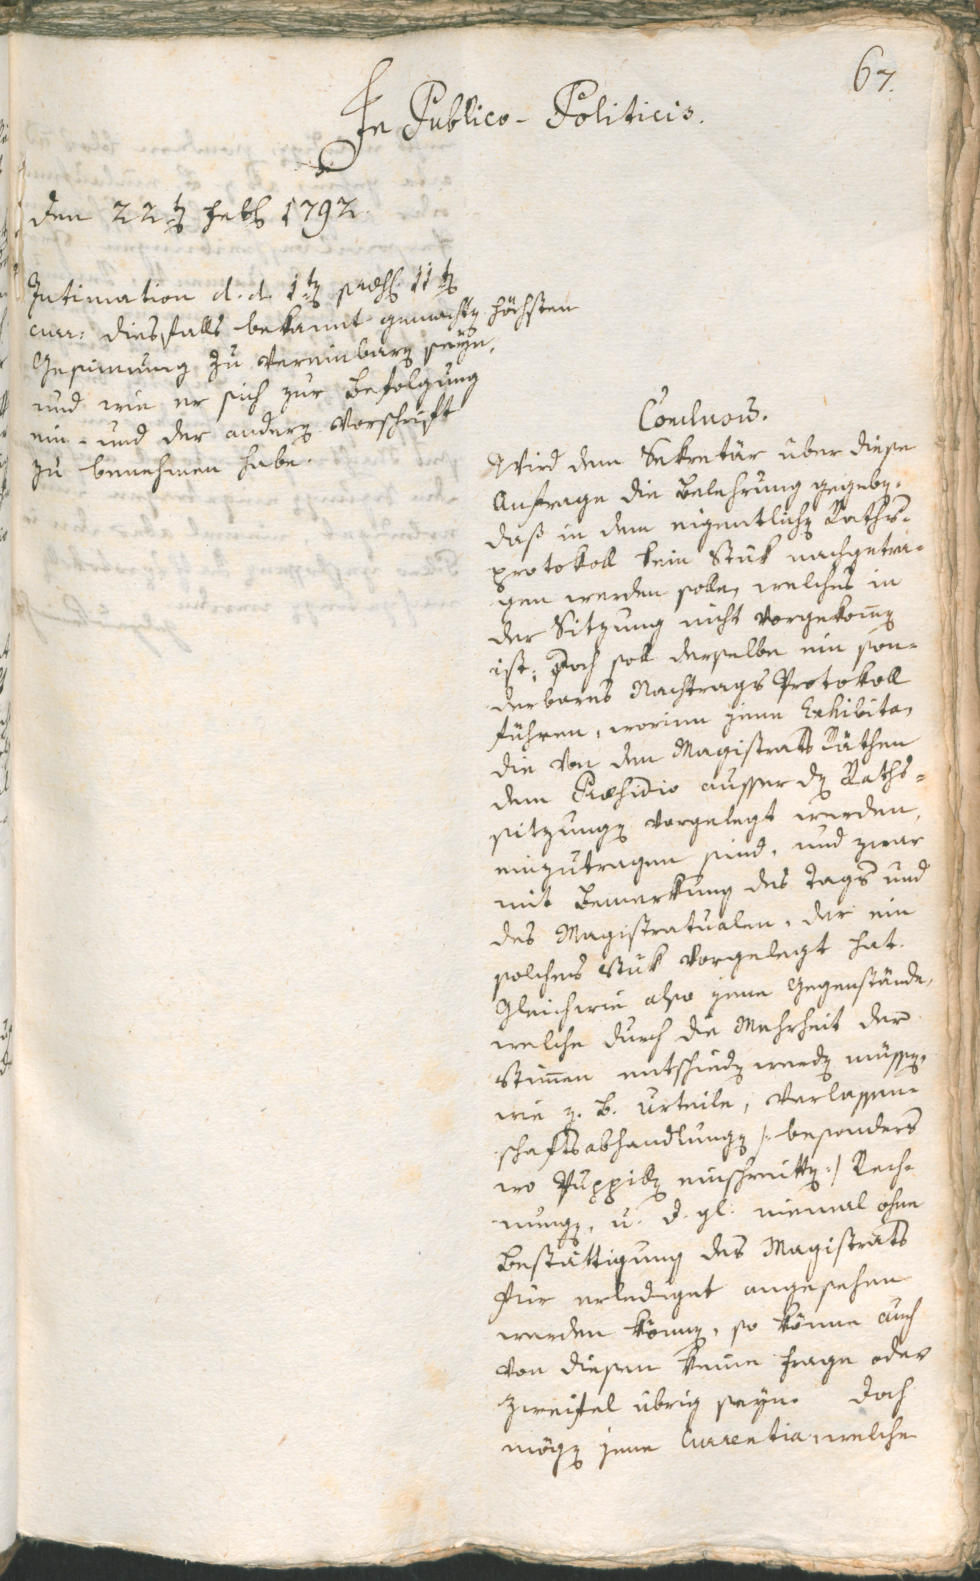 67.
In Publico-Politicis.
den 22ten Febr 1792.
Intimation d. d. 1ten præs. 11ten
curr: diesfalls bekannt gemachten höchsten
Gesinnung zu vereinbaren seyn,
und wie er sich zur Befolgung
ein- und der anderen Vorschrift
zu benehmen habe.
Conclusum.
Wird dem Sekretär über diese
Anfrage die Belehrung gegeben,
daß in dem eigentlichen Raths-
protokoll kein Stük nachgetra-
gen werden solle, welches in
der Sitzung nicht vorgekomen
ist; doch soll derselbe ein son-
derbares Nachtrags Protokoll
führen, worinn jene Exhibita,
die von den Magistrats Räthen
dem Præsidio ausser den Raths-
sitzungen vorgelegt werden,
einzutragen sind, und zwar
mit Bemerkung des Tags und
des Magistratualen, der ein
solches Stük vorgelegt hat.
Gleichwie also jene Gegenstände,
welche durch die Mehrheit der
Stimen entschieden werden müssen,
wie z. B. Urteile, Verlassen-
schaftsabhandlungen /: besonders
wo Puppillen einschreitten :/ Rech-
nungen, u. d. gl. niemal ohne
Bestättigung des Magistrats
für erlediget angesehen
werden können, so könne auch
von diesen keine Frage oder
Zweifel übrig seyn. Doch
mögen jene Currentia welche